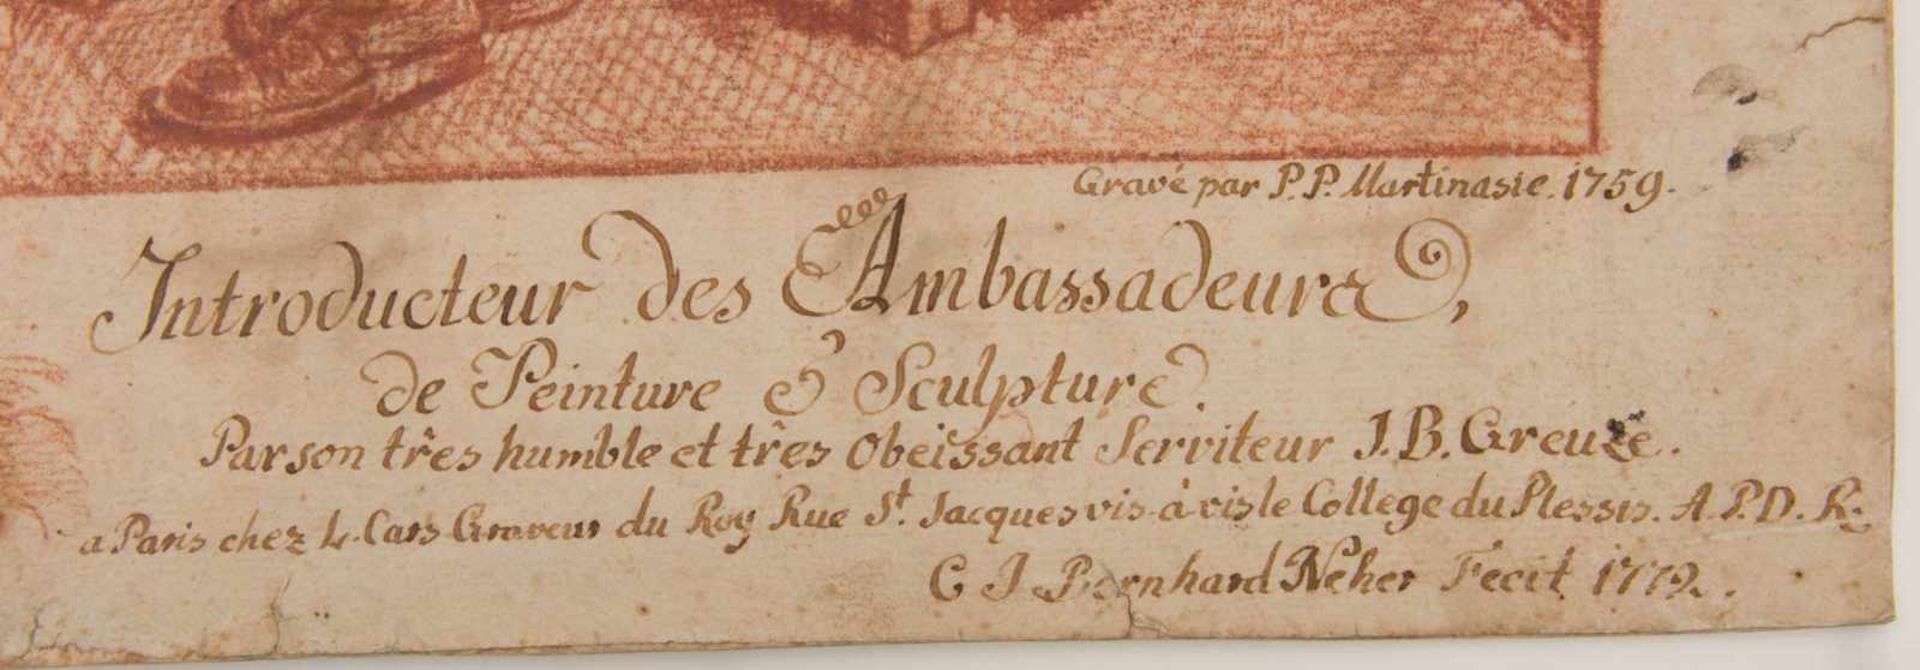 Gravé par P.P. Martinasie. 1759.
Introducteur des Ambassadeurs,
de Peinture & Sculpture.
Par son três humble et três Obeissant Serviteur J.B. Greuze.
a Paris chez L. Cars Graveur du Roy Rue St. Jacques vis à vis le College du Plessis. A.P.D.R.
C J Bernhard Neher Fecit 1779.